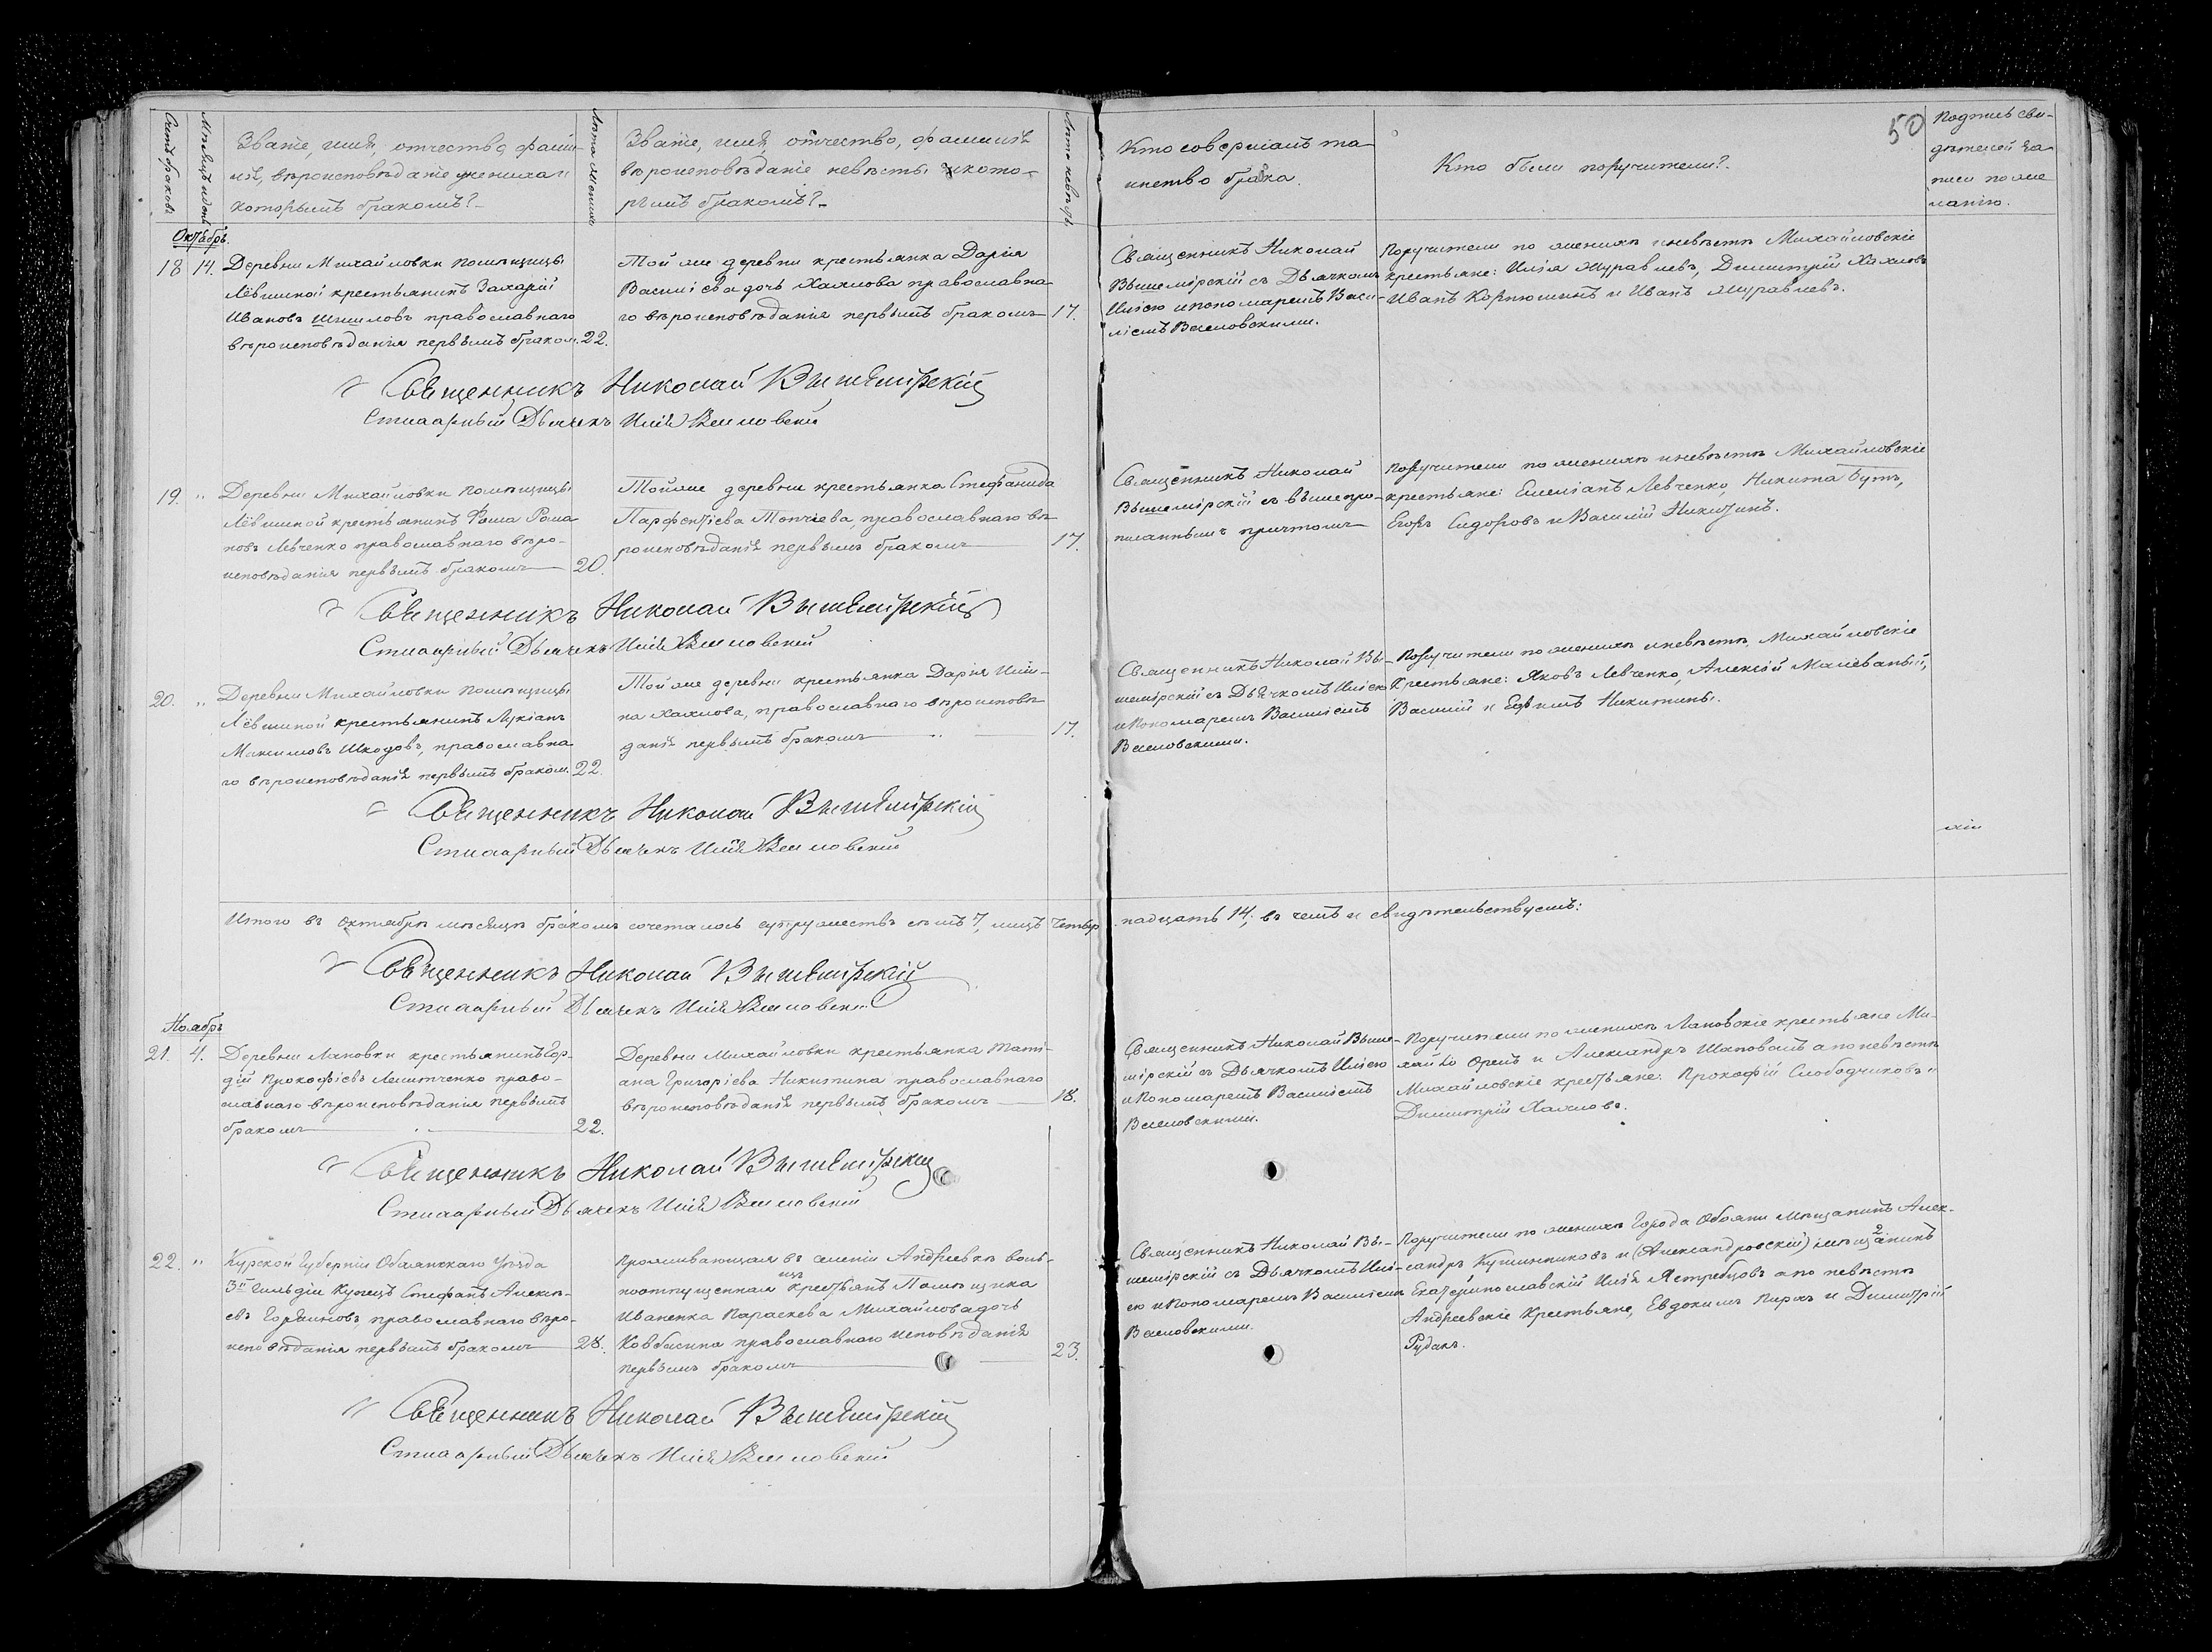 50
Счетъ браковъ
Мѣсяцъ и день
Званіе, имя, отчество, фами-
лія, вѣроисповѣданіе жениха и
которымъ бракомъ?
Лѣта жениха
Званіе, имя, отчество, фамилія
вѣроисповѣданіе невѣсты и кото-
рымъ бракомъ?
Лѣта невѣсты
Кто совершалъ та-
инство брака.
Кто были поручители?
Подпись сви-
дѣтелей за-
писи по же
ланію.
Октябрь.
18 14. Деревни Михайловки помѣщицы
Лёвшиной крестьянинъ Захарій
Ивановъ Шишловъ православнаго
вѣроисповѣданія первымъ браком. 22.
Той же деревни крестьянка Дарія
Василіева дочь Хахлова православна-
го вѣроисповѣданія первымъ бракомъ 17.
Священникъ Николай
Вышемірскій съ Дьячкомъ
Иліею и пономаремъ Васи-
ліемъ Веселовскими.
Поручители по женихѣ и невѣстѣ Михайловскіе
крестьяне: Илія Журавлевъ, Димитрій Хахловъ
Иванъ Корнюшинъ и Иванъ Журавлевъ.
Священникъ Николай Вышемірскій
Стихарный Дьячекъ Илія Веселовскій
19. " Деревни Михайловки помѣщицы
Лёвшиной крестьянинъ Фома Рома
новъ Левченко православнаго вѣро-
исповѣданія первымъ бракомъ 20.
Той же деревни крестьянка Стефанида
Парфентіева Топчіева, православнаго вѣ-
роисповѣданія первымъ бракомъ 17.
Священникъ Николай
Вышемірскій съ вышепро-
писаннымъ причтомъ
Поручители по женихѣ и невѣстѣ Михайловскіе
крестьяне: Емеліанъ Левченко, Никита Бутъ,
Егоръ Сидоровъ и Василій Никитинъ.
Священникъ Николай Вышемірскій
Стихарный Дьячекъ Илія Веселовскій
20. " Деревни Михайловки помѣщицы
Лёвшиной крестьянинъ Лукіанъ
Максимовъ Шкодовъ, православна
го вѣроисповѣданія первымъ браком. 22.
Той же деревни крестьянка Дарія Ильи-
на Хахлова, православнаго вѣроисповѣ
данія первымъ бракомъ 17.
Священникъ Николай Вы-
шемірскій съ Дьячкомъ Иліею
и Пономаремъ Василіемъ
Веселовскими.
Поручители по женихѣ и невѣстѣ Михайловскіе
Крестьяне: Яковъ Левченко, Алексій Малёваный,
Василій и Ефимъ Никитины.
Священникъ Николай Вышемірскій
Стихарный Дьячекъ Илія Веселовскій
Итого въ Октябрѣ мѣсяцѣ бракомъ сочеталось супружествъ семь 7, лицъ четыр надцать 14; въ чемъ и свидѣтельствуемъ:
Священникъ Николай Вышемірскій
Стихарный Дьячекъ Илія Веселовскій
Ноябрь
21. 4. Деревни Лановки крестьянинъ Гор-
дій Прокофіевъ православ-
славнаго вѣроисповѣданія первымъ
бракомъ 22.
Деревни Михайловки крестьянка Тати-
ана Григоріева Никитина православнаго
вѣроисповѣданія первымъ бракомъ 18.
Священникъ Николай Выше-
мірскій съ Дьячкомъ Иліею
и Пономаремъ Василіемъ
Веселовскими.
Поручители по женихѣ Лановскіе крестьяне Ми-
хайло Орелъ и Александръ Шаповалъ а по невѣстѣ
Михайловскіе крестьяне: Прокофій Слободчиковъ и
Димитрій Хахловъ.
Священникъ Николай Вышемірскій
Стихарный Дьячекъ Илія Веселовскій
22. " Курской Губерніи Обоянскаго Уѣзда
3й Гильдіи Купецъ Стефанъ Алексѣ-
евъ православнаго вѣро-
исповѣданія первымъ бракомъ 28.
Проживающая въ селеніи Андреевкѣ воль-
ноотпущенная изъ крестьянъ Помѣщика
Иваненка Параскева Михайлова дочь
Ковбасина православнаго исповѣданія
первымъ бракомъ 23.
Священникъ Николай Вы-
шемірскій съ Дьячкомъ Илі-
ею и Пономаремъ Василіемъ
Веселовскими.
Поручители по женихѣ Города Обояни Мѣщанинъ Алек-
сандръ и (Александровскій) мѣщанинъ
Екатеринославскій Илія Ястребцовъ а по невѣстѣ
Андреевскіе Крестьяне, Евдокимъ и Димитрій
Рудакъ.
Священникъ Николай Вышемірскій
Стихарный Дьячекъ Илія Веселовскій